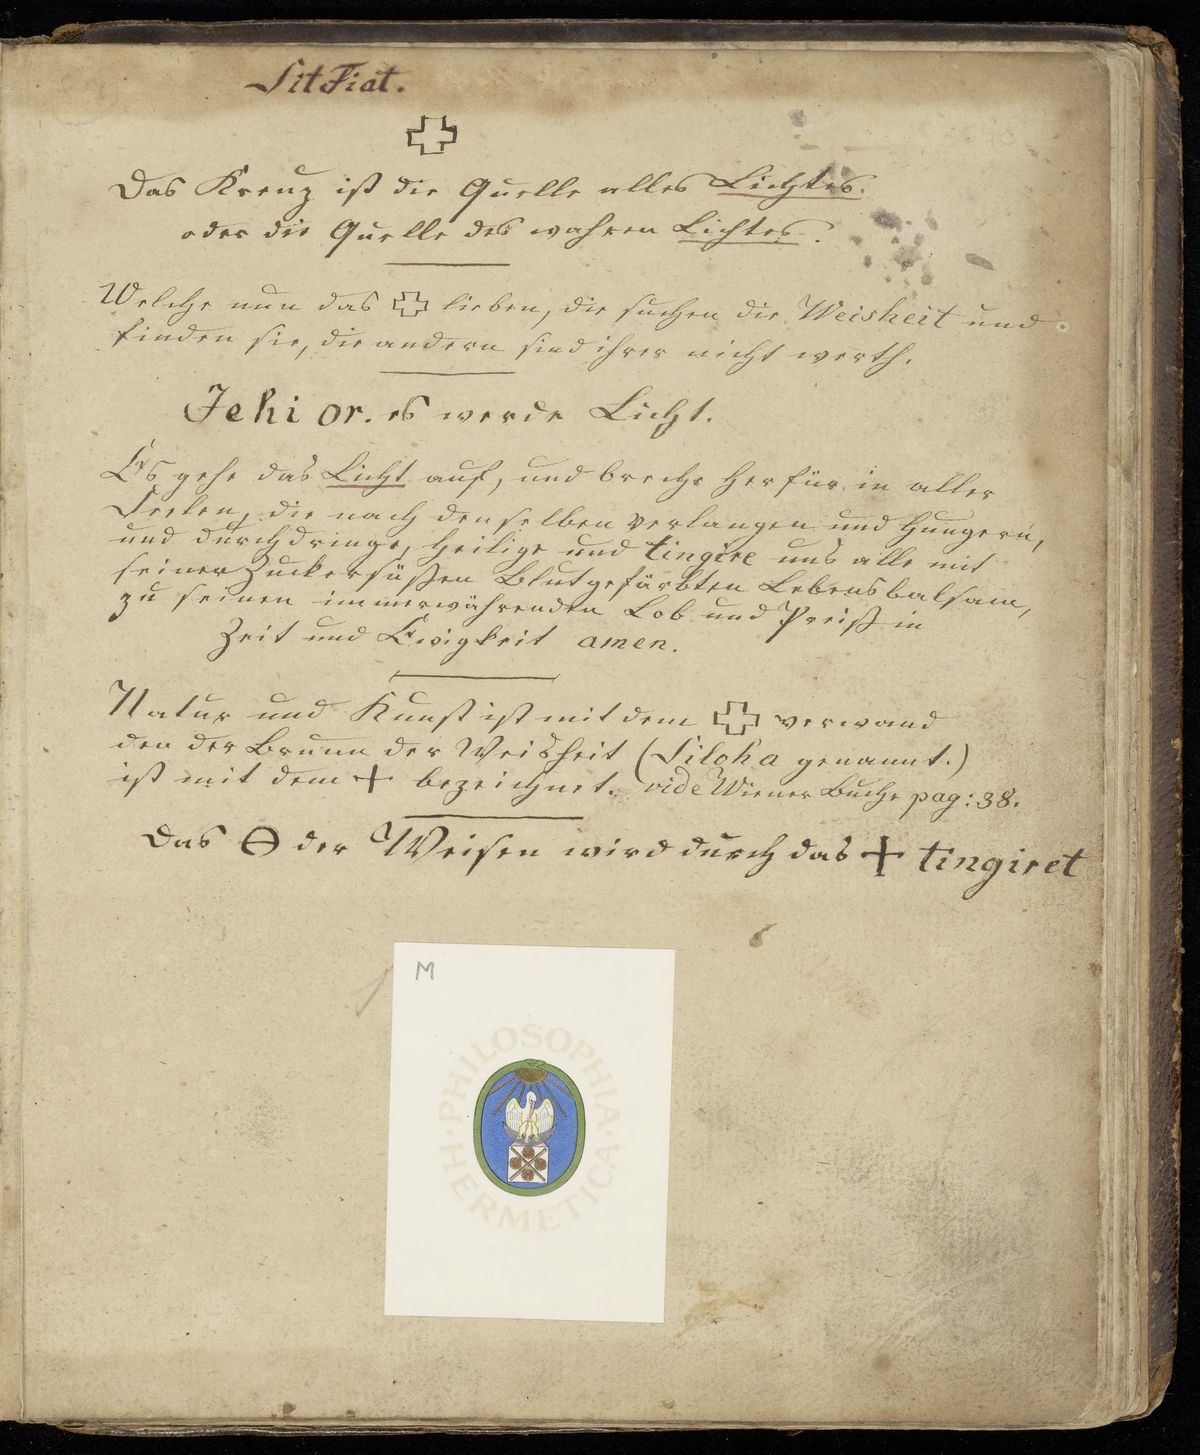 Sit Fiat.
Das Kreuz ist die Quelle alles Lichtes.
oder die Quelle des wahren Lichtes.
Welche nun das ✚ lieben, die suchen die Weisheit und
finden sie, die andern sind ihrer nicht werth.
Jehi or. es werde Licht.
Es gehe das Licht auf, und breche herfür in aller
Seelen, die nach denselben verlangen und hungern,
und durchdringe, heilige und tingire uns alle mit
seiner Zuckersüßen Blutgefärbten Lebensbalsam,
zu seinen immerwährenden Lob und Preiß in
Zeit und Ewigkeit amen.
Natur und Kunst ist mit dem ✚ verwand
den der Brunn der Weisheit (Siloha genannt.)
ist mit dem + bezeichnet. vide Wiener Buche pag: 38.
Das ⊖ der Weisen wird durch das + tingiret
M
PHILOSOPHIA · HERMETICA ·